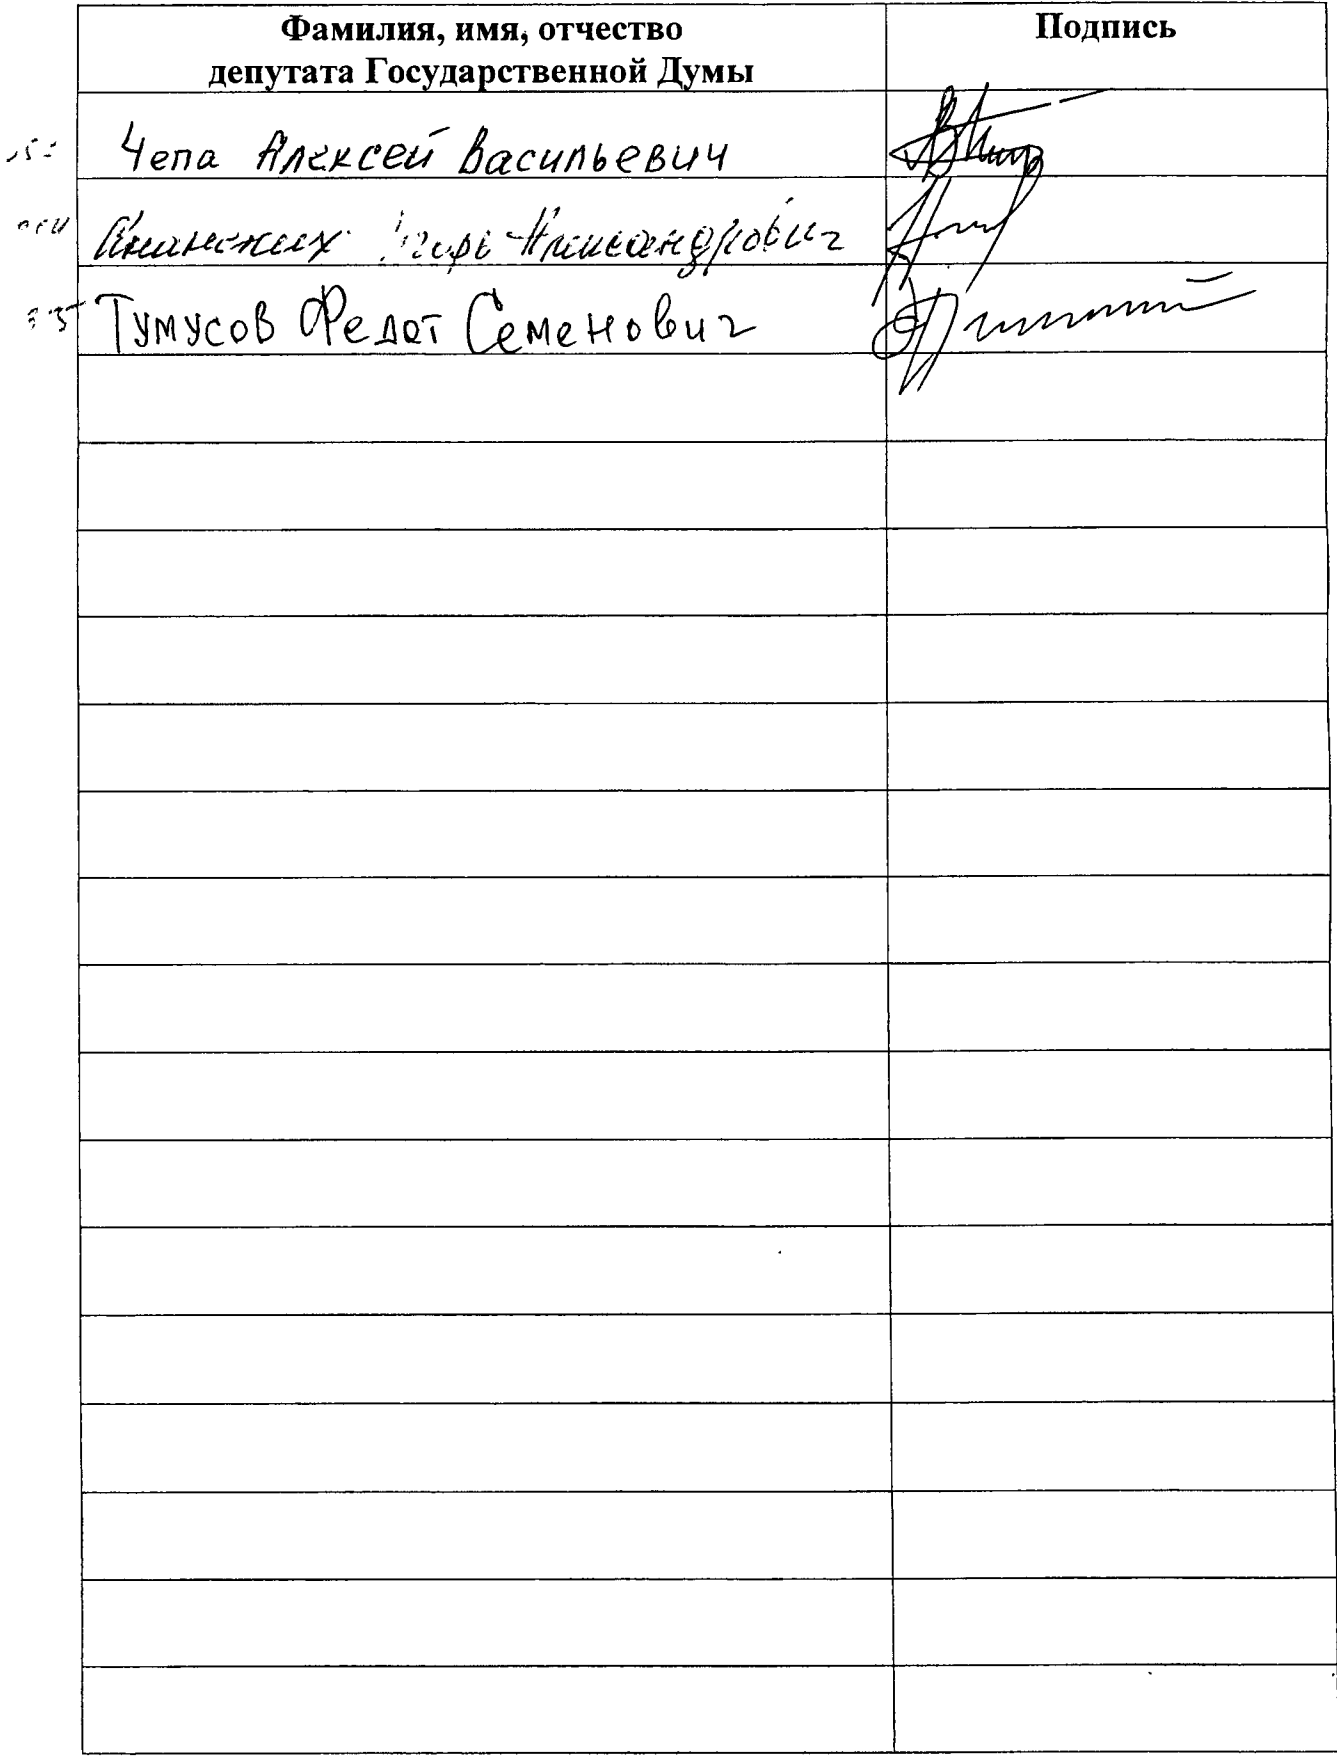 Фамилия, имя, отчество
депутата Государственной Думы
Подпись
Чепа Алексей Васильевич
Ананских Игорь Александрович
Тумусов Федот Семенович